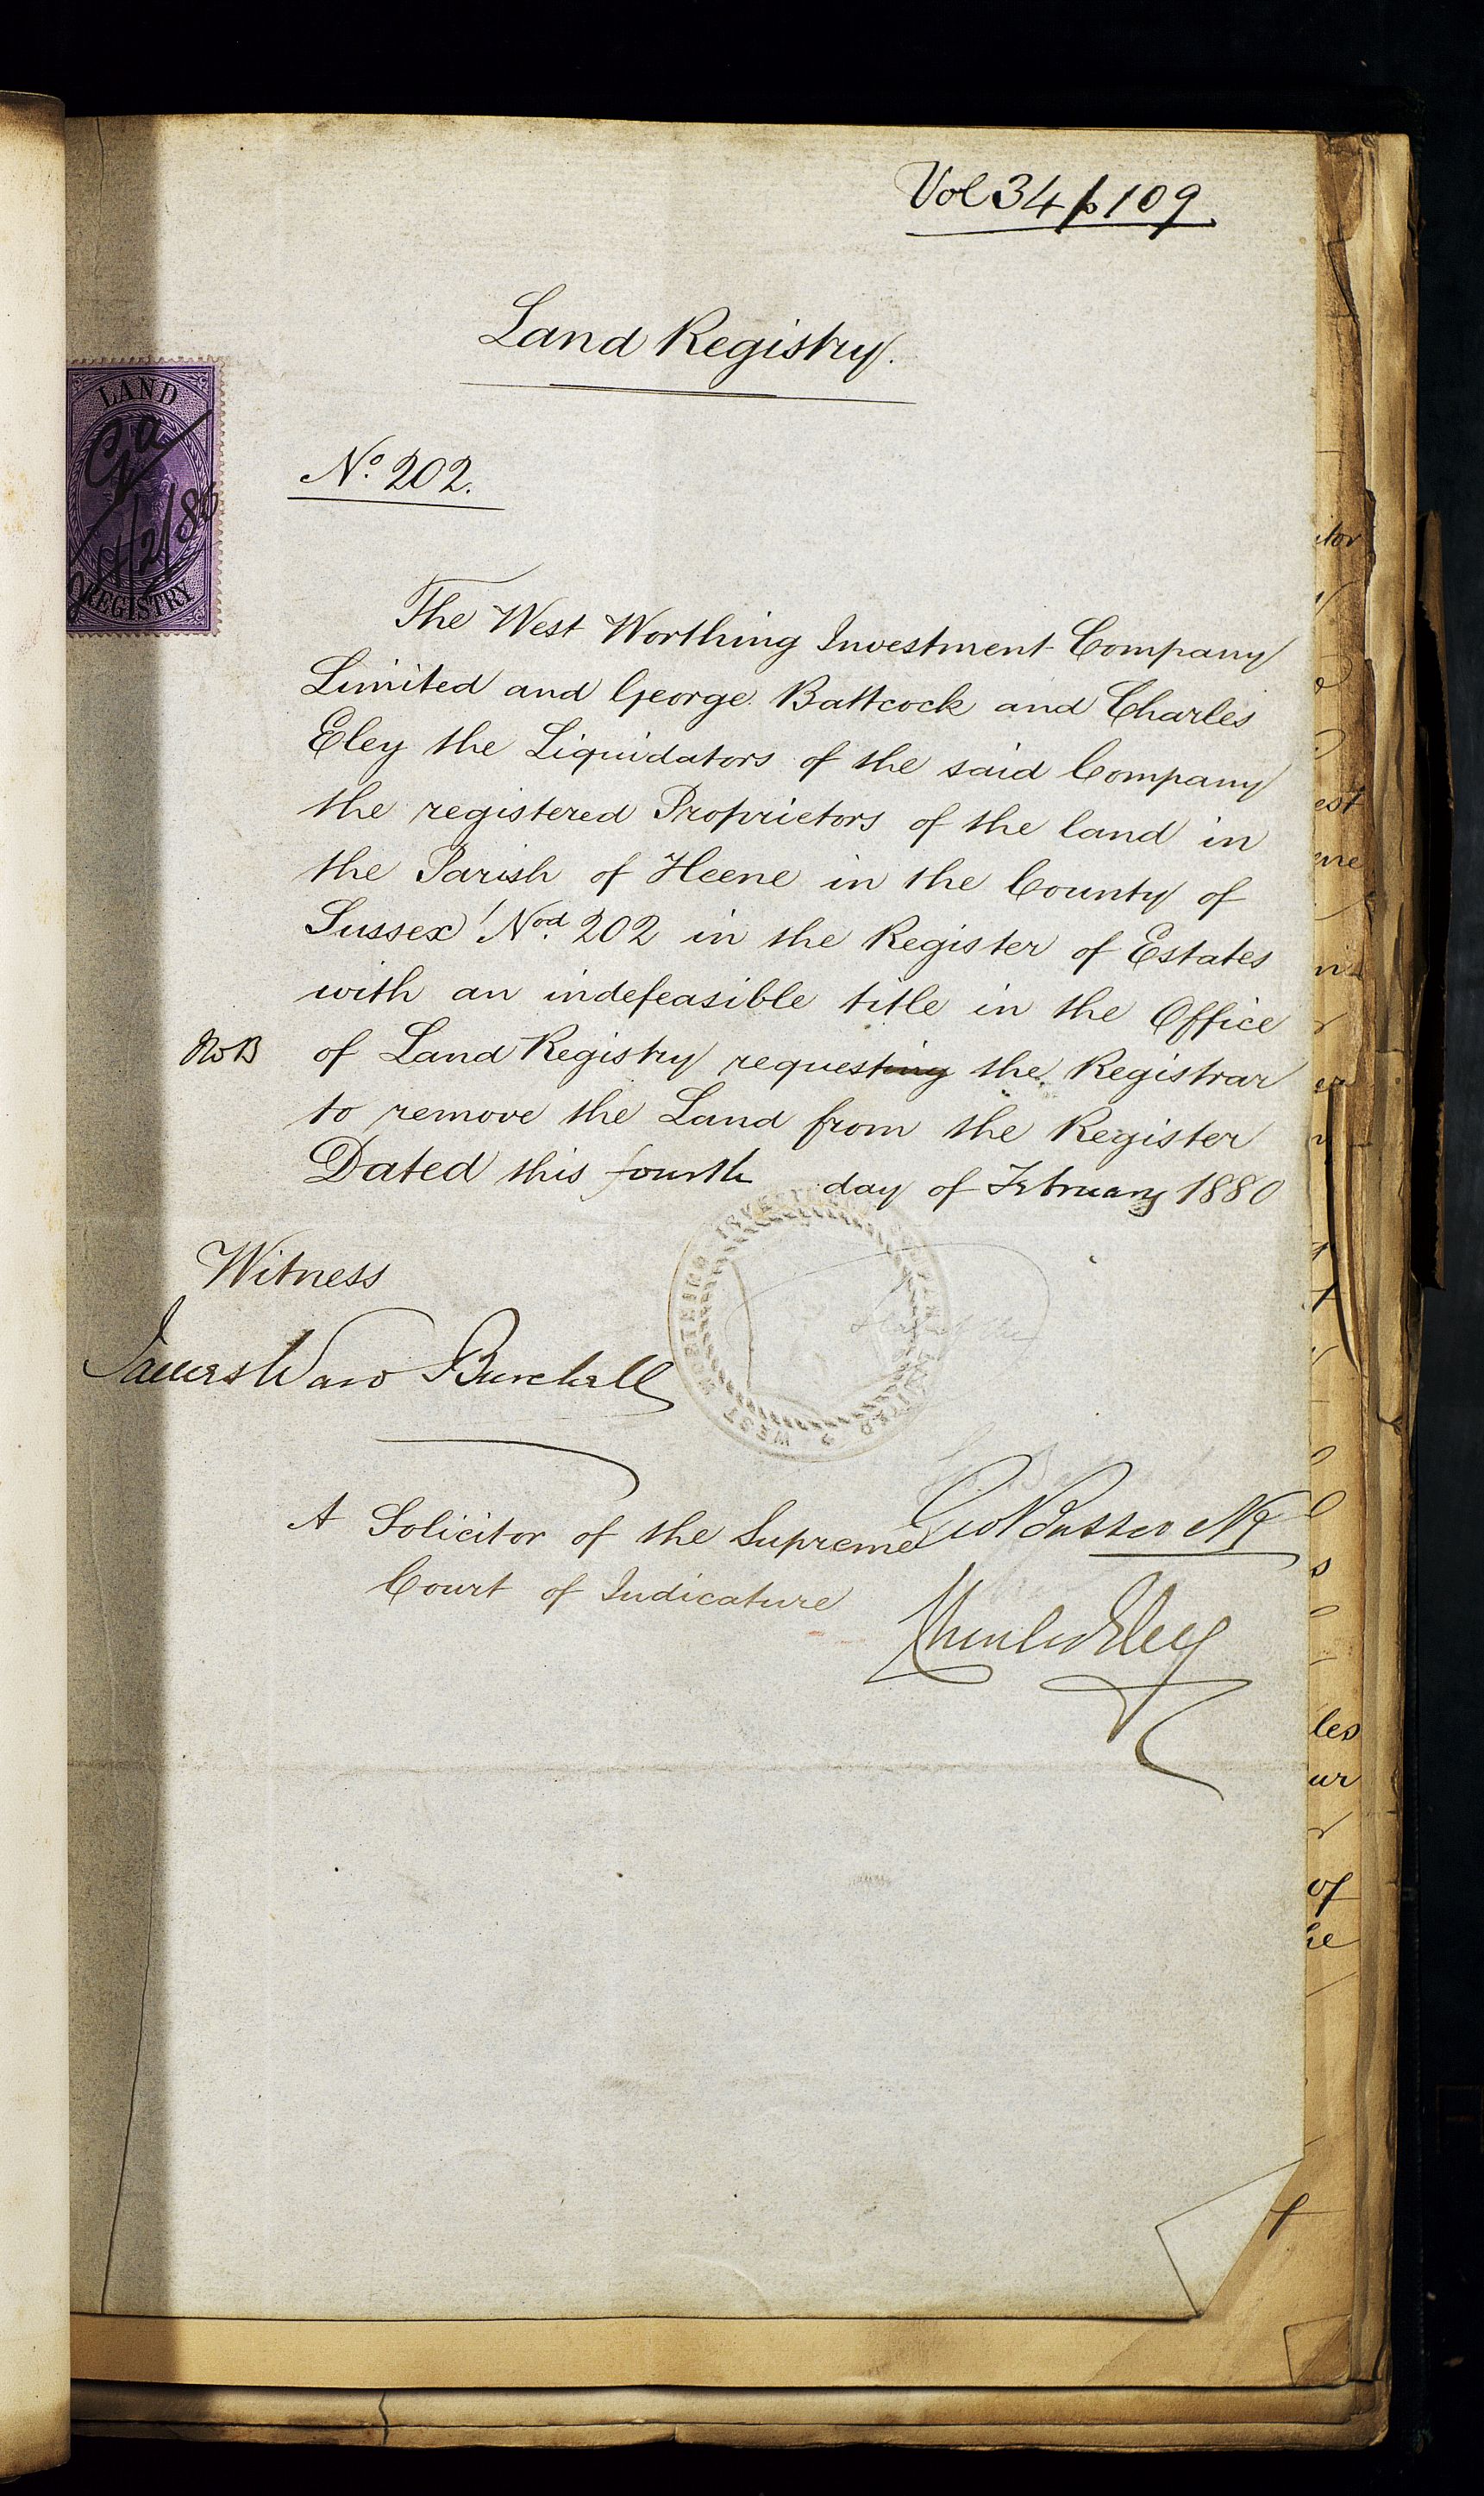 Vol 34 p 109
Land Registry.
LAND
REGISTRY
4/2/80
No. 202.
The West Worthing Investment Company
Limited and George Battcock and Charles
Eley the Liquidators of the said Company
the registered Proprietors of the land in
the Parish of Heene in the County of
Sussex Nod. 202 in the Register of Estates
with an indefeasible title in the Office
of Land Registry requesting the Registrar
to remove the Land from the Register
Dated this fourth day of February 1880
Witness
James Ward Burchell
A Solicitor of the Supreme
Court of Judicature
Geo Battcock
Charles Eley
WEST WORTHING INVESTMENT COMPANY LIMITED
itor
est
les
ur
of
he